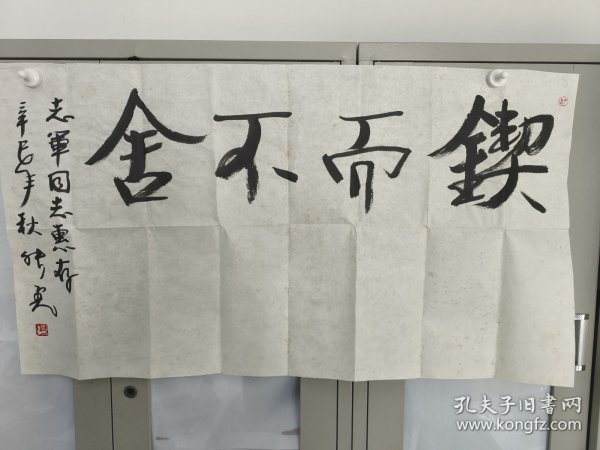 锲而不舍
志軍同志惠存
辛巳年秋
孔夫子旧書网
www.kongfz.com